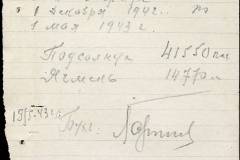 1 Декабря 1942г. по
1 мая 1943 г.
Подсолнух 41550 кг
Ячмень 14770 кг
15/5-43 г.
Бух.